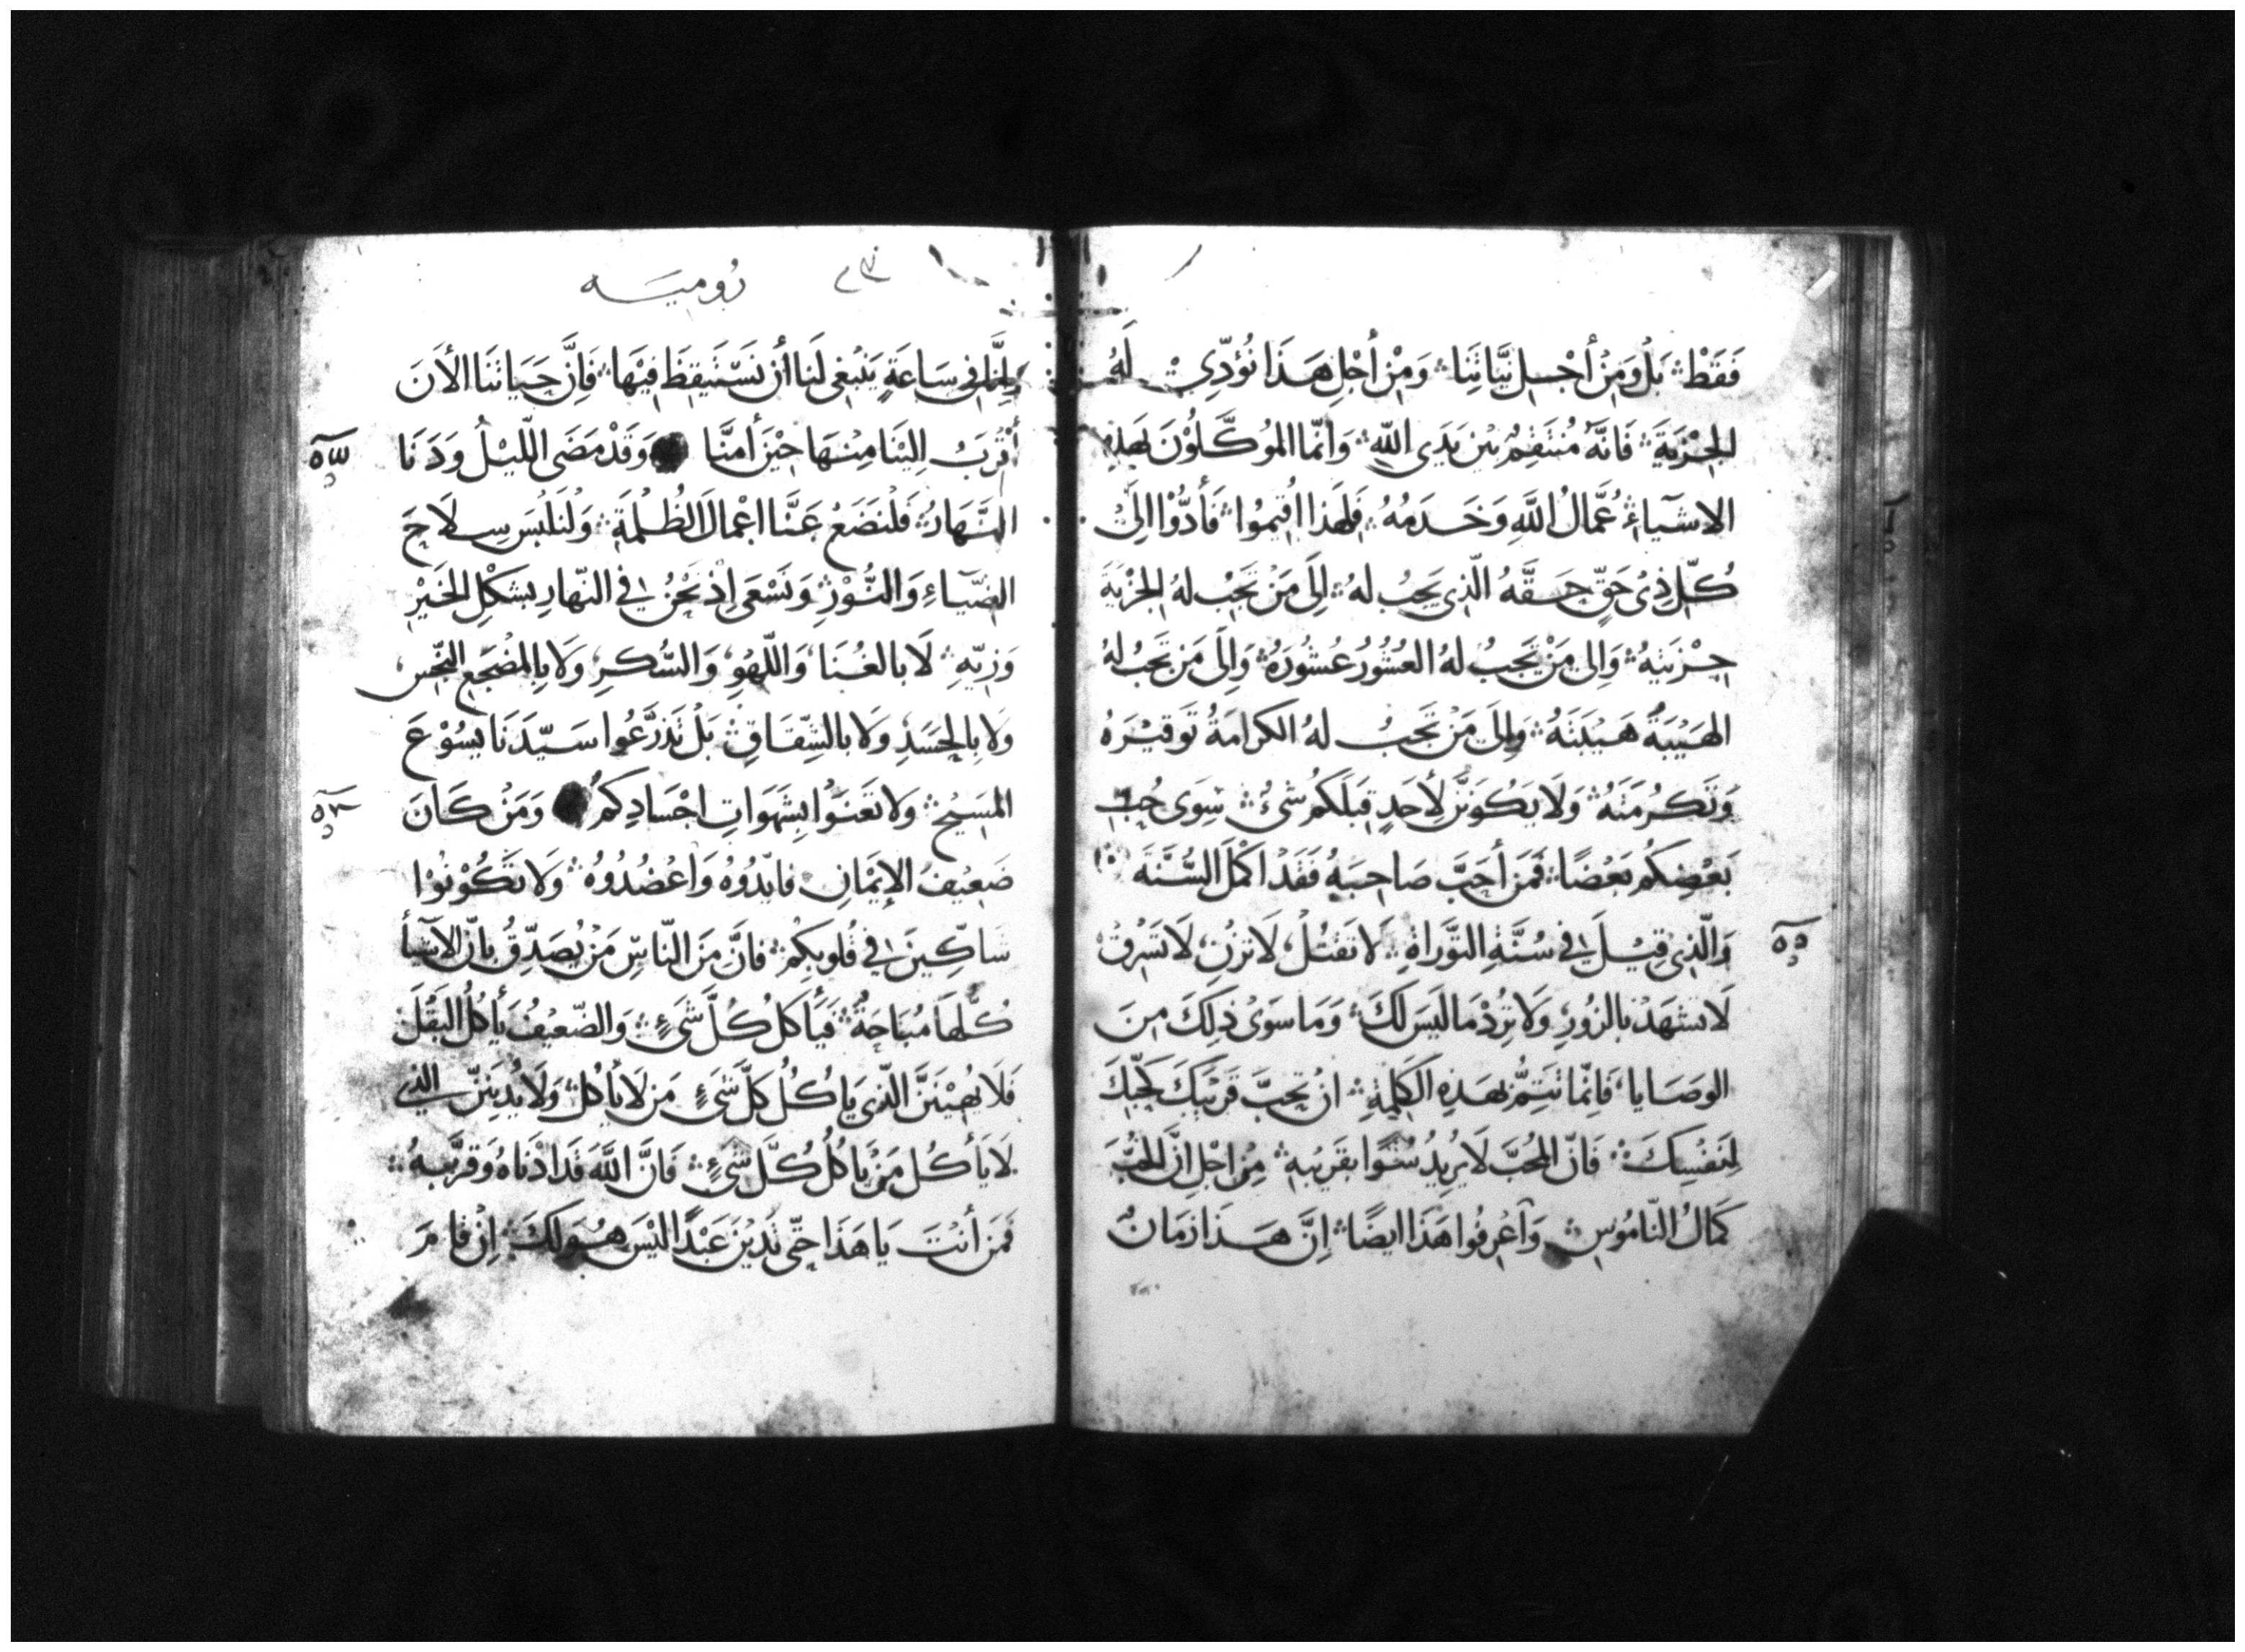 فَقَطْ؞ بَلْ وَمِنْ أَجْلِ نِيَّاتِنَا؞ وَمِنْ أَجْلِ هَذَا نُؤَدِّي لَهُ
الجِزْيَةَ؞ فَانَّهُ مُنتَقِمٌ بَيْن يَدَى اللّهِ؞ وَانّما المُوكَّلُوْنَ بَهَذِهِ
الاشيآءِ؞ عُمَّالُ اللَّهِ وَخَدَمُهُ؞ فَلِهَذا اُقيمُوا؞ فَأَدُّوْا الِىْ
كُلّ ذِىْ حَقٍّ حَقَّهُ الّذِى يَجِبُ لهُ؞ الِىَ مَنْ تَجِبُ لهُ الجزْيَةَ
جِزْيَتِهُ؞ وَالِى مَنْ تَجَبُ لهُ العُشُورُ عُشُورَهُ؞ وَالِىَ مَن تَجَبُ لهُ
الهَيْبَةُ هَيْبَتَهُ؞ وَالِىَ مَنْ تَجَبُ لهُ الكَرامَةُ تَوقيْرَهُ
وَتَكرُمَتَهُ؞ وَلَا يَكُونَنَّ لأِحَدٍ قِبَلَكُم شَىْءٌ؞ سِوَى حُبِّ
بَعْضِكُم بَعْضًا؞ فَمَن أَحَبَّ صَاحِبَهُ فَقَدْ اكْمَلَ السُّنَّةَ؞
وَالّذِى قِيْلَ فى سُنَّةِ التَّوَراةِ؞ لَا تَقتُلْ، لَا تزْنِ، لَا تَسْرِقْ
لَا تشهَدْ بالزُورِ، وَلَا تُرِدْ مَا لَيسَ لكَ؞ وَمَا سوَىْ ذلِكَ مِنَ
الوَصَايا، فَاِنّما تَتِمُّ بهَذِهِ الكَلِمَةِ؞ انْ تُحِبَّ قَرِيْبَكَ كَحُبِّكَ
لِنَفْسِكَ؞ فَانّ المُحبّ لَا يُرِيْدُ سُوًا بقَرِيْبِهِ؞ مِنْ اجْلِ انَّ المحُبَّ
كَمَالُ النّامُوسِ؞ وَآعْرِفُوا هَذَا ايضًا؞ اِنَّ هَذَا زمَانٌ
رُوميَه
فى سَاعَةٍ يَنبَغِى لَنا أَن نَسْتَيقِظَ فيْهَا؞ فَاِنَّ حَيَاتَنَا الأَنَ
أَقْرَبُ الِيْنَا مِنْهَا حِيْنَ أَمنَّا وَقَدْ مَضَى اللّيْلُ وَدَنَا
النَّهَارُ؞ فَلْنضَعْ عَنَّا اعْمالَ الظُلْمَةِ؞ وَلْنَلْبَسْ سِلَاحَ
الضّيَآءِ وَالنُّوْرِ؞ وَنَسْعَى إِذْ نَحْنُ فى النّهارِ بشكْلِ الخَيْرِ
وَزِيّهِ؞ لَا بالغُنَا، وَاللّهْوِ، وَالسُّكرِ، وَلَا بِالمضْجَعِ النّجِس،
وَلا بِالحَسَدِ وَلَا بالشِّقَاقِ؞ بَلْ تَدَرَّعُوا سَيّدَنَا يسُوْعَ
المَسِيْحَ؞ وَلا تَعْنَوْا بِشَهَوَاتِ اجْسَادِكمُ وَمَنْ كَانَ
ضَعِيْفَ الإِيْمَانِ، فايّدُوهُ وَاعْضُدُوهُ؞ وَلَا تَكُوْنُوْا
شَاكِّينَ فى قُلوبكِمْ؞ فانَّ مَنَ النّاسِ مَنْ يُصَدِّقُ بانّ الآشيأ
كُلَّهَا مُبَاحَةٌ؞ فَيَأكلُ كُلَّ شَىءٍ؞ وَالضّعيْفُ يَأكُلُ البَقْلَ
فَلَا يُهِيْنَنَّ الّذِى يَاكُلُ كلَّ شَىءٍ مَن لا يأكلُ؞ وَلَا يُدِيْنَنّ الّذِى
لَا يَأكُل مَنْ يَاكلُ كُلَّ شَىءٍ؞ فَانَّ اللَّهَ قَدَ ادْنَاهُ وَقرَّبهُ؞
فَمَن أَنْتَ يَا هَذَا حَتّى تَدِيْنَ عَبْدًا لَيْسَ هُوَ لَكَ؞ اِنْ قامَ